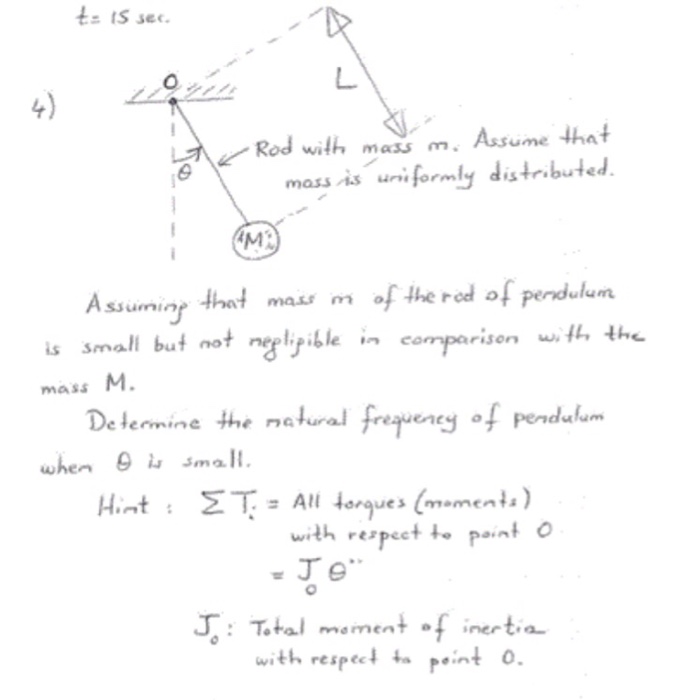 t = 15 sec.
4)
O
L
Rod with mass m. Assume that
mass is uniformly distributed.
θ
M
Assuming that mass m of the rod of pendulum
is small but not negligible in comparison with the
mass M.
Determine the natural frequency of pendulum
when θ is small.
Hint : ΣTᵢ = All torques (moments)
with respect to point O
= J₀ θ¨
J₀ : Total moment of inertia
with respect to point O.